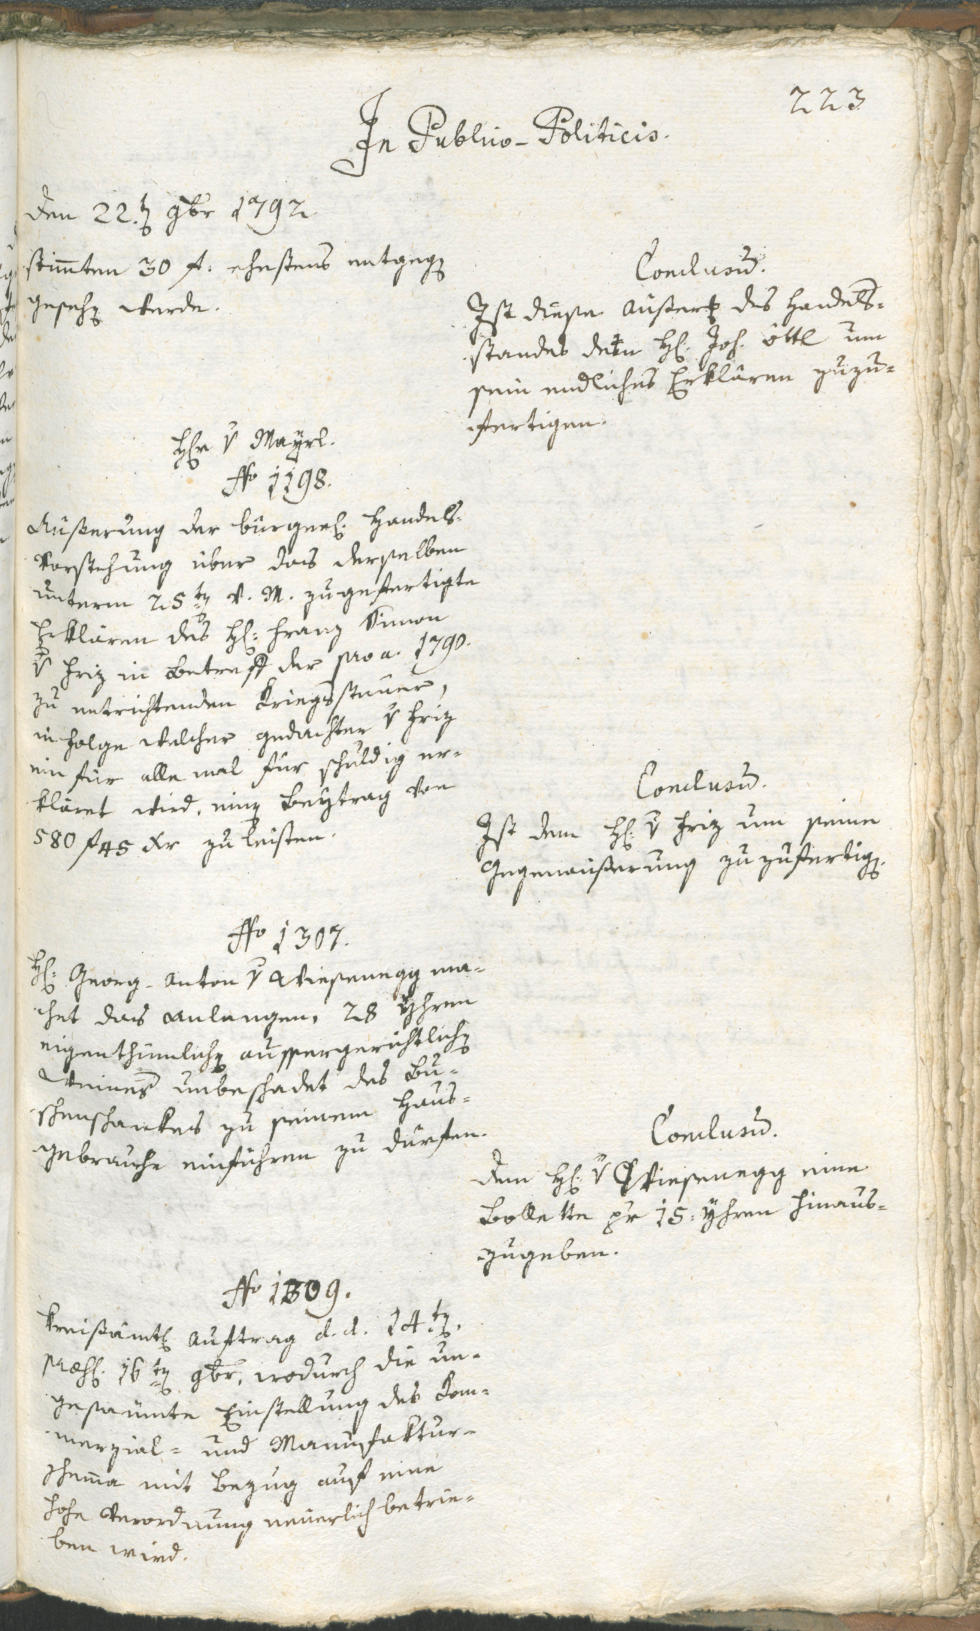 223
In Publico-Politicis.
den 22.t 9br 1792
stim̄ten 30 f. ehestens entgeg
gesehen werde.
Conclusum.
Ist diese Äußerung des Handels-
standes dem H: Joh. Öttl um
sein endliches Erklären zuzu-
fertigen.
Hr v Mayrl.
No 1198.
Äußerung der bürgerl: Handels-
Vorstehung über das derselben
unterm 25ten v. M. zugefertigte
Erklären des H: Franz Simon
v Friz in Betreff der pro a. 1790.
zu entrichtenden Kriegssteuer,
in Folge welcher gedachter v Friz
ein für alle mal für schuldig er-
kläret wird, einen Beytrag von
580 f 45 Xr zu leisten.
Conclusum.
Ist dem H: v Friz um seine
Gegenäußerung zuzufertigen.
No 1307.
H: Georg Anton v Wiesenegg ma-
chet das Anlangen, 28 Yhren
eigenthümlich aussergerichtlich
Weines unbeschadet des Bu-
schenschankes zu seinem Haus-
gebrauche einführen zu dürfen.
Conclusum.
Dem H: v Wiesenegg eine
Bollette pr 15. Yhren hinaus-
zugeben.
No 1309.
Kreisämtl: Auftrag d. d. 14ten.
praes: 16ten 9br, wodurch die un-
gesäumte Einstellung des Kom-
merzial- und Manufaktur-
schema mit Bezug auf eine
hohe Verordnung neuerlich betrie-
ben wird.